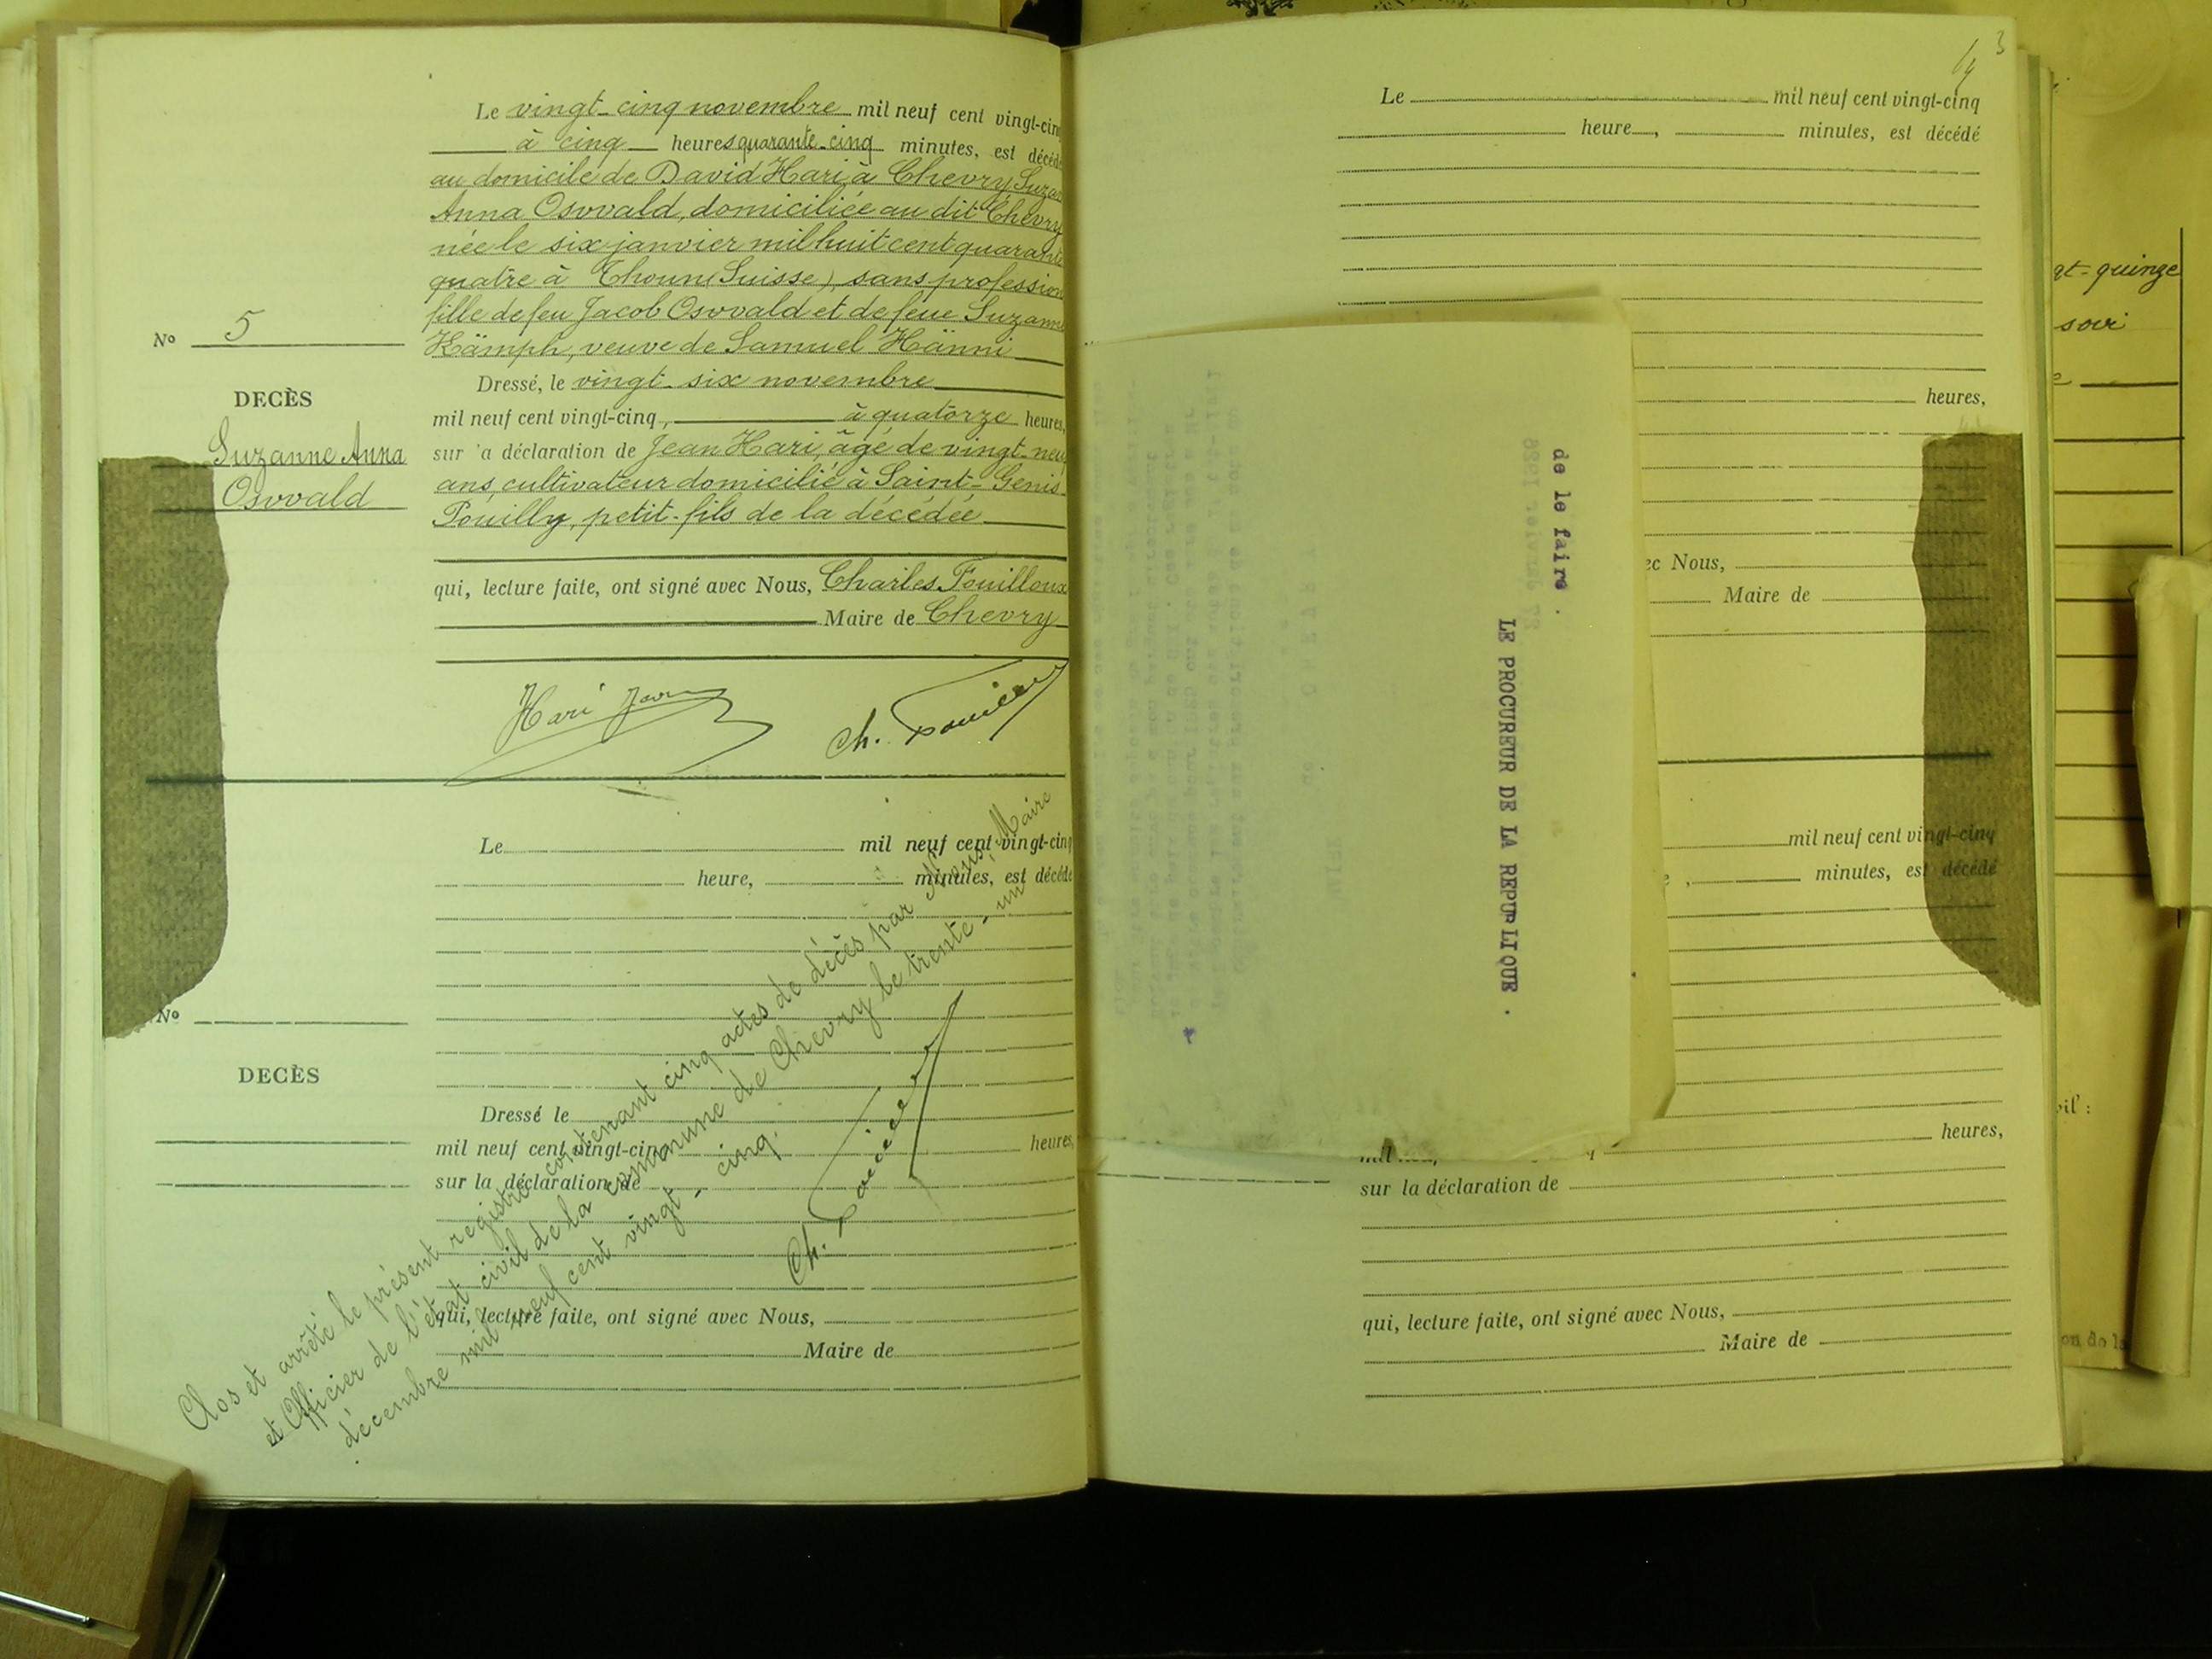 Le vingt-cinq novembre mil neuf cent vingt-cinq
à cinq heures quarante-cinq minutes, est décédé
au domicile de David Hari, à Chevry Suzan
Anna Osvvald, domiciliée au dit Chevry
née le six janvier mil huit cent quarante
quatre à Thoun (Suisse), sans profession
fille de feu Jacob Osvvald et de feue Suzanne
No 5
Kämph, veuve de Samuel Hänni
Dressé, le vingt-six novembre
DECÈS
mil neuf cent vingt-cinq, à quatorze heures,
Suzanne Anna
Osvvald
sur 'a déclaration de Jean Hari, âgé de vingt-neuf
ans, cultivateur domicilié à Saint-Genis-
Pouilly, petit-fils de la décédée
qui, lecture faite, ont signé avec Nous, Charles Fouilloux
Maire de Chevry
Hari Jean
Ch. Fouilloux
Le mil neuf cent vingt-cinq
heure, minutes, est décédé
No
DECÈS
Dressé le
mil neuf cent vingt-cinq heures,
sur la déclaration de
qui, lecture faite, ont signé avec Nous,
Maire de
Clos et arrêté le présent registre contenant cinq actes de décès par Nous, Maire
et Officier de l'état civil de la commune de Chevry le trente-un
décembre mil neuf cent vingt-cinq.
Ch. Fouilloux
3
Le mil neuf cent vingt-cinq
heure, minutes, est décédé
heures,
ec Nous,
Maire de
de le faire .
LE PROCUREUR DE LA REPUPLIQUE .
mil neuf cent vingt-cinq
minutes, est décédé
heures,
sur la déclaration de
qui, lecture faite, ont signé avec Nous,
Maire de
gt-quinze
soir